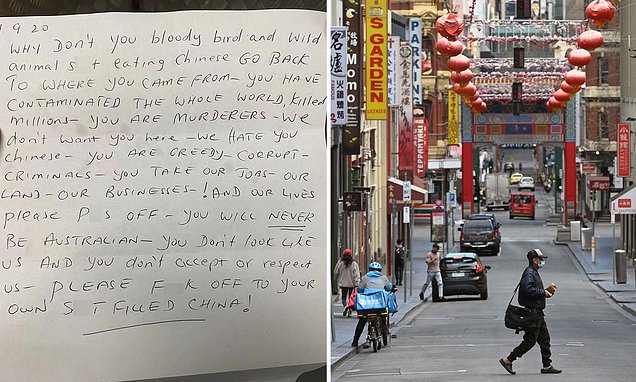 9 20
WHY DON'T you bloody bird and wild
animal s t eating Chinese GO BACK
TO WHERE YOU CAME FROM - YOU HAVE
CONTAMINATED THE WHOLE WORLD, Killed
Millions - YOU ARE MURDERERS - We
don't want you here - we HATE you
Chinese - you ARE GREEDY - CORRUPT -
CRIMINALS - YOU TAKE OUR JOBS - OUR
LAND - OUR BUSINESSES - ! AND OUR LIVES
please P S OFF - YOU WILL NEVER
BE AUSTRALIAN - YOU DON'T look LIKE
US AND you don't accept or respect
US - PLEASE F K OFF TO YOUR
OWN S T FILLED CHINA!
Momo
'S GARDEN
PARKIN
EPPANYAKI